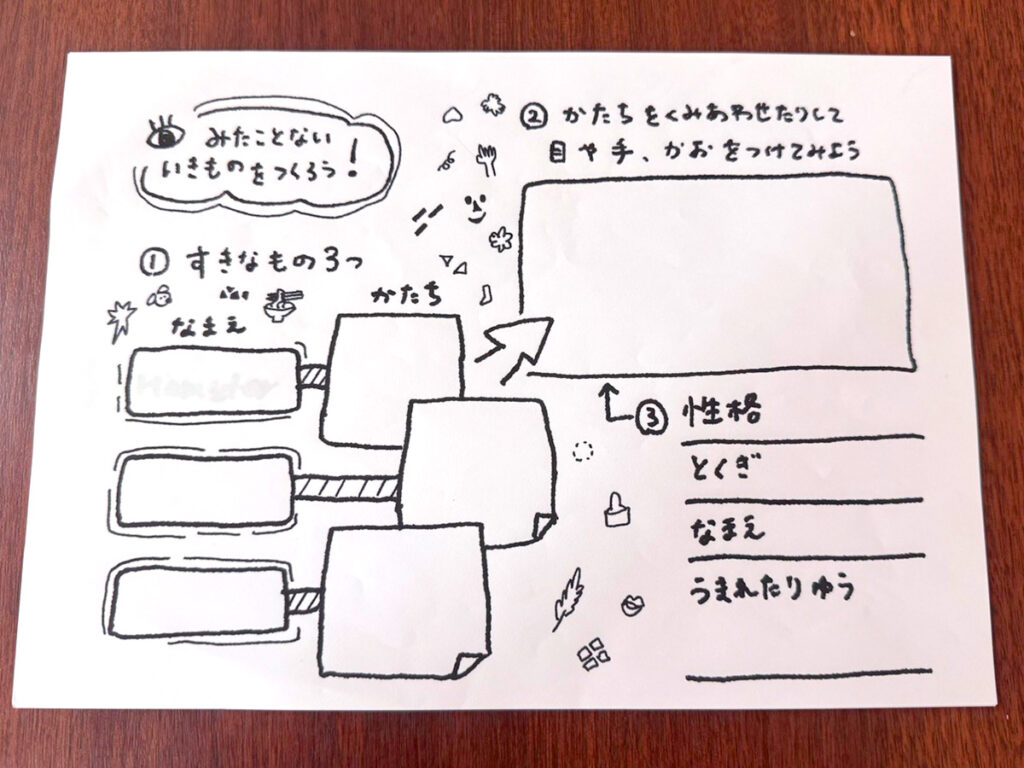 みたことない
いきものをつくろう!
① すきなもの3つ
なまえ
かたち
② かたちをくみあわせたりして
目や手、かおをつけてみよう
③ 性格
とくぎ
なまえ
うまれたりゆう